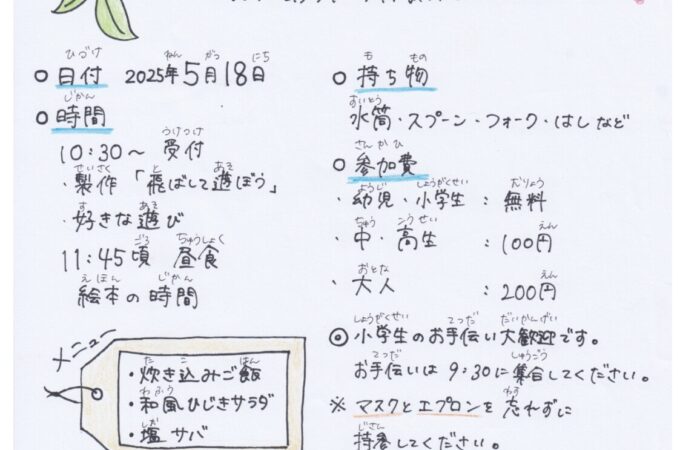 ○ 日付 2025年5月18日
○ 時間
10:30～ 受付
・製作「飛ばして遊ぼう」
・好きな遊び
11:45頃 昼食
絵本の時間
メニュー
・炊き込みご飯
・和風ひじきサラダ
・塩サバ
○ 持ち物
水筒・スプーン・フォーク・はしなど
○ 参加費
・幼児・小学生：無料
・中・高生：100円
・大人：200円
◎小学生のお手伝い大歓迎です。
お手伝いは 9:30に集合してください。
※ マスクとエプロンを忘れずに
持参してください。